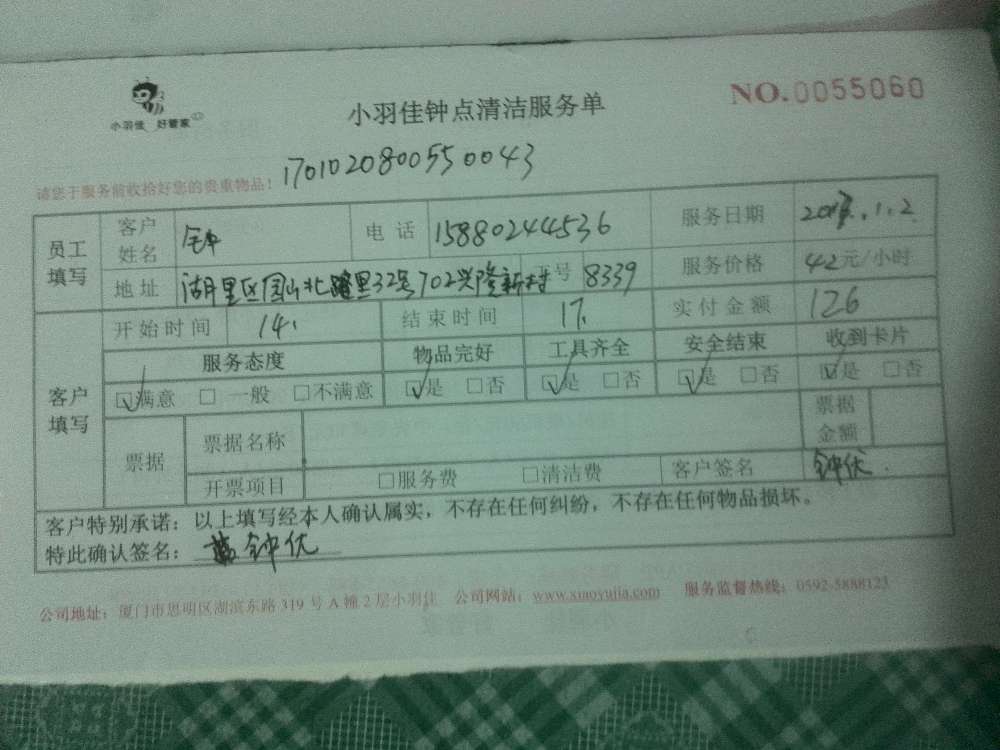 小羽佳 好管家
小羽佳钟点清洁服务单
NO.0055060
请您于服务前收拾好您的贵重物品!
170102080055 0043
员工填写
客户姓名 钟 电话 15880244536 服务日期 2017.1.2
地址 湖里区园山北路里32号702兴隆新村 工号 8339 服务价格 42元/小时
客户填写
开始时间 14: 结束时间 17: 实付金额 126
服务态度 物品完好 工具齐全 安全结束 收到卡片
☑满意 □一般 □不满意 ☑是 □否 ☑是 □否 ☑是 □否 ☑是 □否
票据 票据名称 票据金额
开票项目 □服务费 □清洁费 客户签名 钟优
客户特别承诺：以上填写经本人确认属实，不存在任何纠纷，不存在任何物品损坏。
特此确认签名： 钟优
公司地址：厦门市思明区湖滨东路319号A幢2层小羽佳 公司网站：www.xiaoyujia.com 服务监督热线：0592-5888123